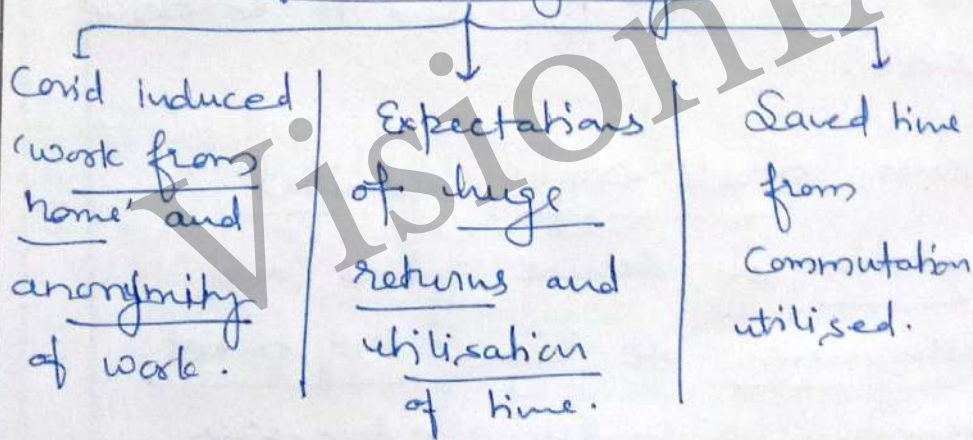 Covid induced
'work from
home' and
anonymity
of work.
Expectations
of huge
returns and
utilisation
of time.
Saved time
from
Commutation
utilised.
Vision